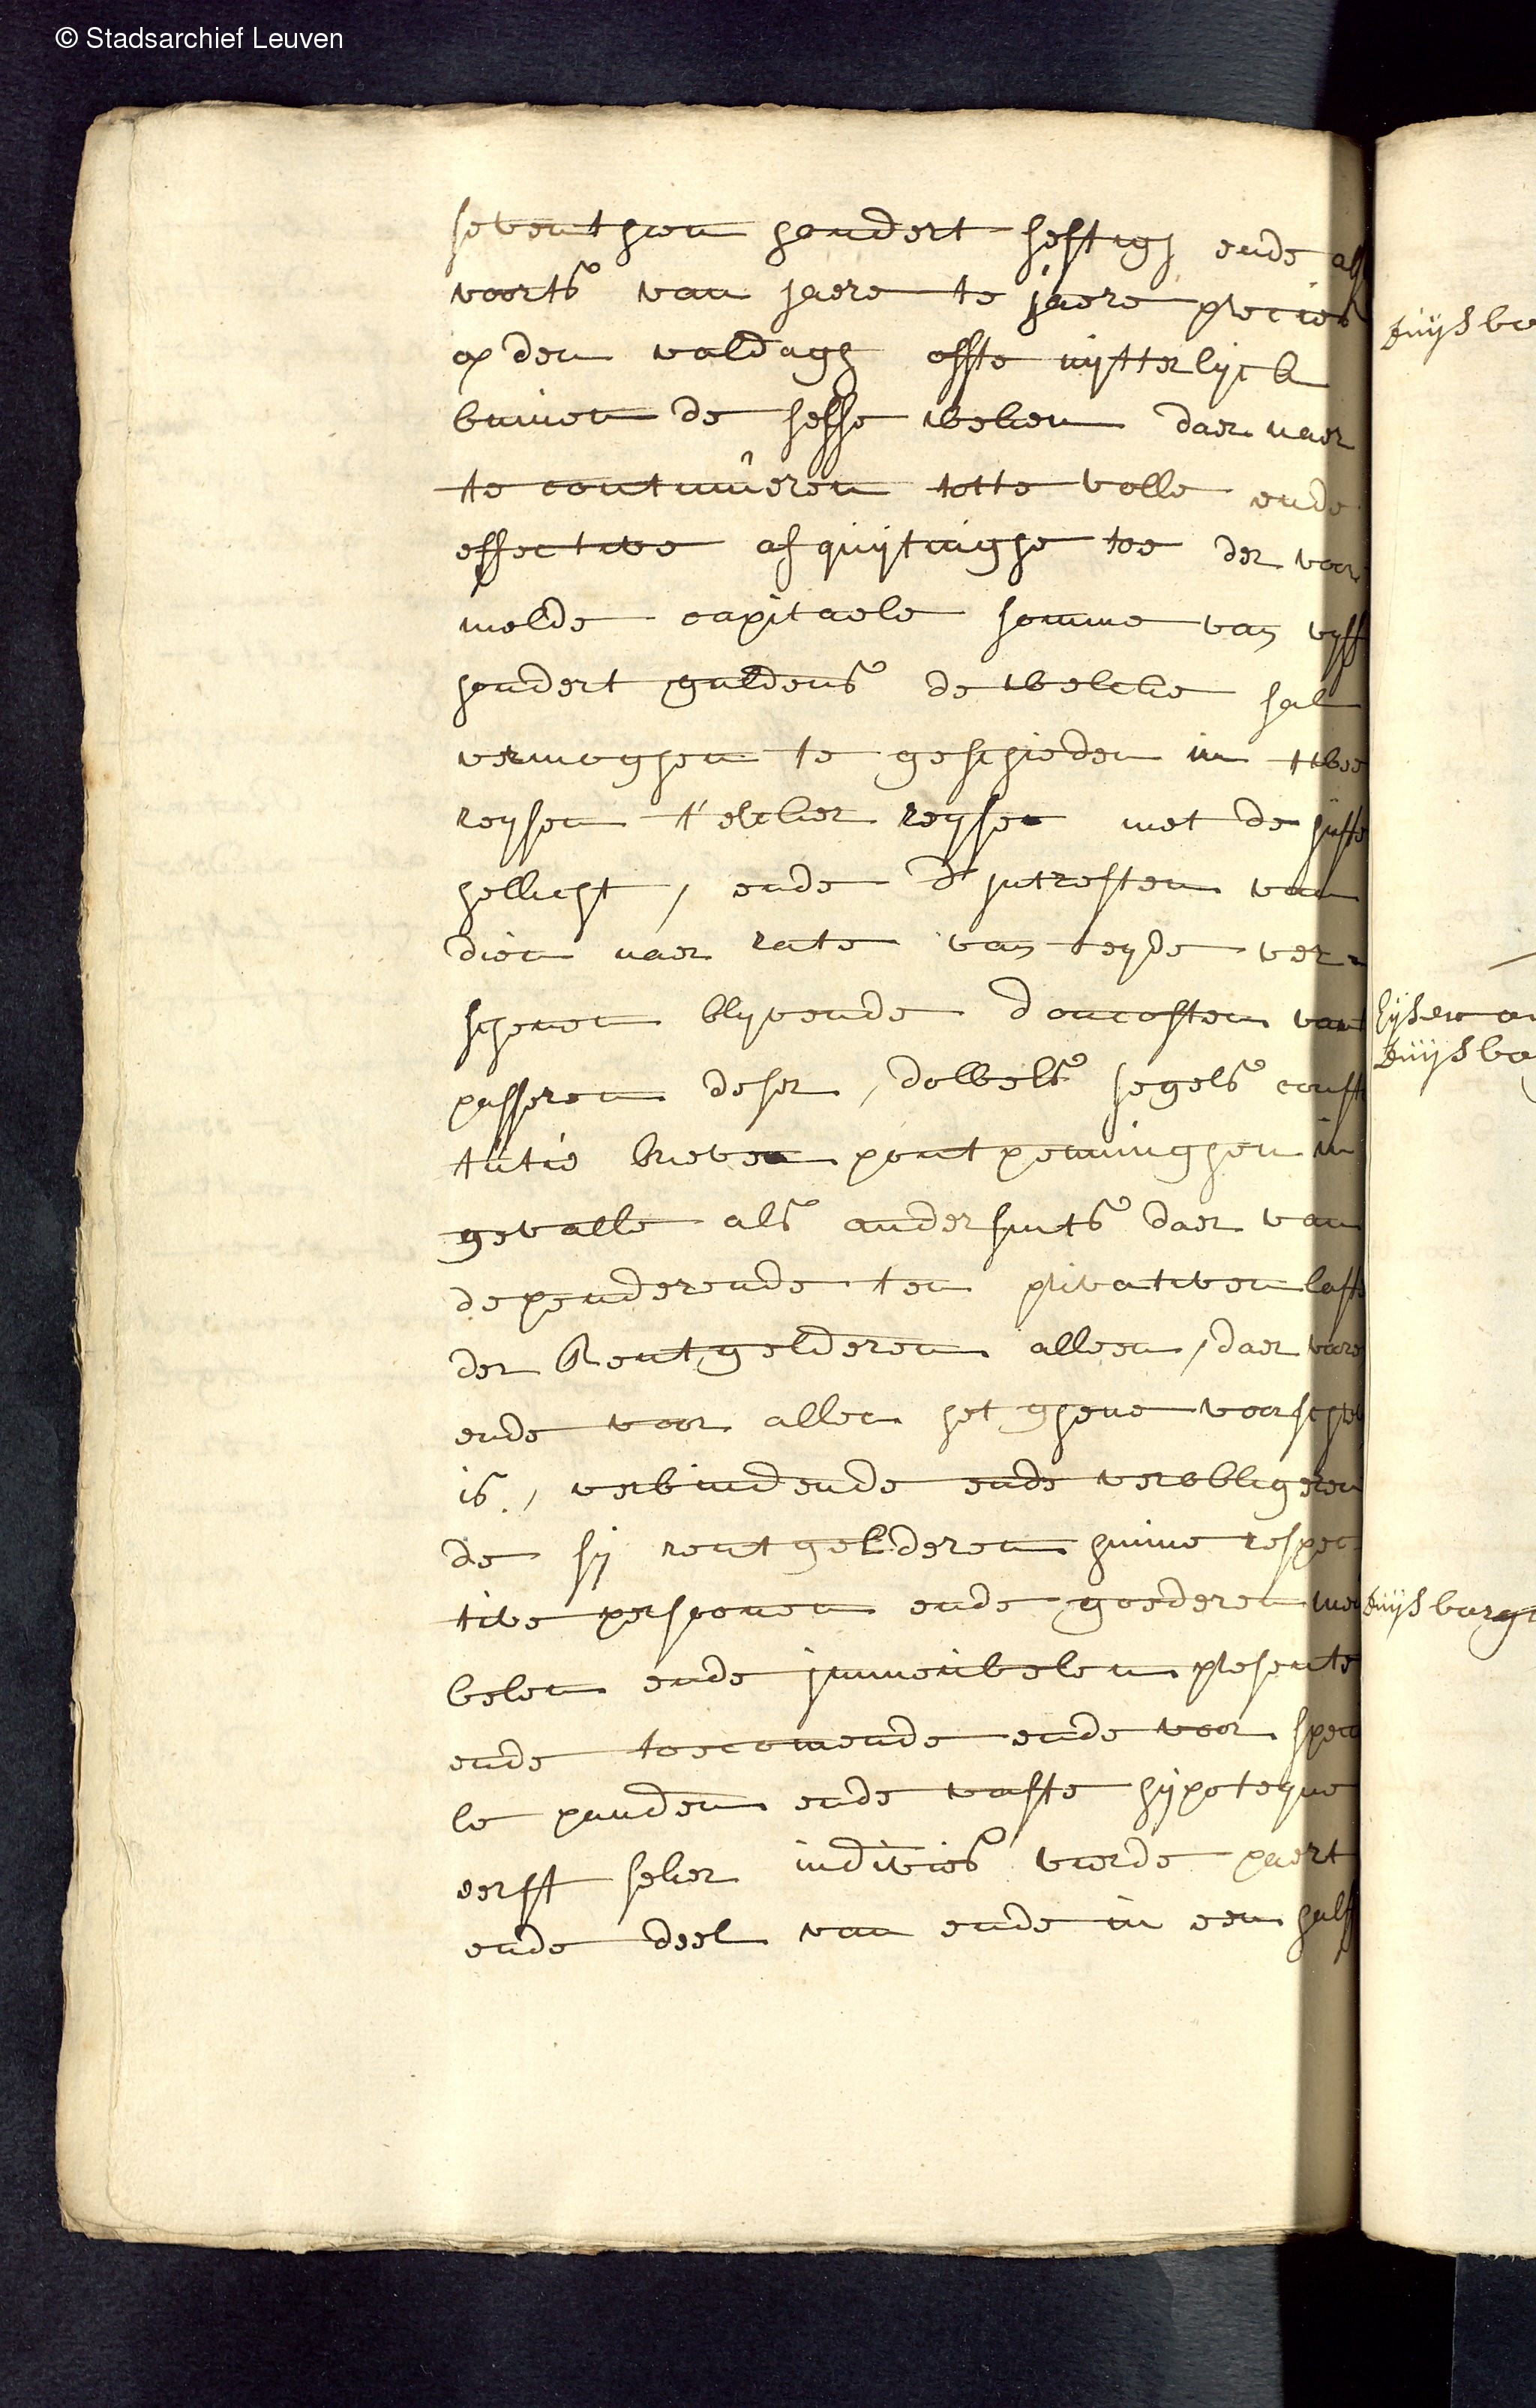 © Stadsarchief Leuven
seventhien hondert sestigh ende als
voorts van jaere te jaere precies
op den valdagh offte uytterlyck
binnen de sesse weken daer naer
te continuëren totte volle ende
effective afquijtinghe toe der voor
melde capitaele somme van vyff
hondert guldens de welcke sal
vermoghen te geschieden in twee
reysen t'elcker reysen met de juste
hellicht, ende d'intresten van
dien naer rate van teyde ver-
schenen blyvende d'oncosten van
passeren deser, dobbels segels consti
tutie brieven pontpenninghen in
gevalle als andersints daer van
dependerende ten privativen laste
der Rentgelderen alleen, daer vore
ende voor allen het ghene voorschre
is, verbindende ende verobligeren
de sij rentgelderen hunne respec
tive persoonen ende goederen meu
belen ende immeubelen presente
ende toecomende ende voor specia
le panden ende vaste hypoteque
eerst seker indivies vierde paert
ende deel van ende in een half
Duijsbo
Eijsero
Duijsbo
Duijsburgh